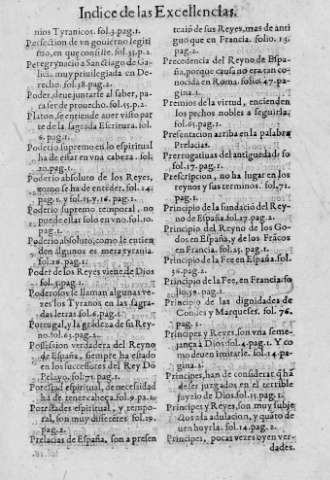 Indice de las Excellencias.
nios Tyranicos. fol.3.pag.1.
Perfection de vn gouierno legiti
mo, en que consiste. fol.33.p.2.
Peregrynacio a Sanctiago de Gali
cia, muy priuilegiada en De-
recho. fol.38.pag.2.
Poder, deue juntarse al saber, pa-
ra ser de prouecho. fol.55.p.2.
Platon, se entiende auer visto par
te de la sagrada Escritura. fol.
6.pag.1.
Poderio supremo es lo espiritual
ha de estar en vna cabeça. fol.
20.pag.1.
Poderio absoluto de los Reyes,
como se ha de enteder. fol.14.
pag.1. y fol.15.y.16. pag.1.
Poderio supremo temporal, no
puede estar solo en vno. fol.10.
pag.1.
Poderio absoluto, como le entien
den algunos es mera tyrania.
pag.1.
Poder de los Reyes viene de Dios
pag.1.
Poderosos se llaman algunas ve-
zes los Tyranos en las sagra-
das letras. fol.6.pag.1.
Portugal, y la grãdeza de su Rey-
no. fol.63.pag.1.
Possession verdadera del Reyno
de España, siempre ha estado
en los successores del Rey Dõ
Pelayo. fol.71.pag.1.
Potestad espiritual, de necesidad
ha de tener cabeça. fol.9.pa.1.
Potestades espiritual, y tempo-
ral, son muy differetes. fol.19.
pag.2.
Prelacias de España, son a presen
tació de sus Reyes, mas de anti
guo que en Francia. folio.15.
pag.2.
Precedencia del Reyno de Espa-
ña, porque causa no era tan co-
nocida en Roma. folio.47.pa-
gina.1.
Premios de la virtud, encienden
los pechos nobles a seguirla.
fol.65.pag.1.
Presentacion arriba en la palabra
Prelacias.
Prerrogatiuas del antiguedad. fo
fol.17.pag.1.
Prescripcion, no ha lugar en los
reynos y sus terminos. fol.72.
pag.1.
Principio de la fundació del Rey-
no de España. fol.17.pag.2.
Principio del Reyno de los Go-
dos en España, y de los Frãcos
en Francia. fol.25.pag.1.
Principio de la Fee en España. fol.
pag.2.
Principio de la Fee, en Francia. fo
lio.32.pag.1.
Principio de las dignidades de
Condes y Marqueses. fol.76.
pag.1.
Principes y Reyes, son vna seme-
jança à Dios. fol.4.pag.1. Y co
mo deuen imitarle. fol.14.pa-
gina.1.
Principes, han de considerar q̃ hã
de ser juzgados en el terrible
juyzio de Dios. fol.15.pag.1.
Principes y Reyes, son muy subje
ctos a la adulacion, y quãto de
uen huyrla. fol.14.pag.2.
Principes, pocas vezes oyen ver-
dades.